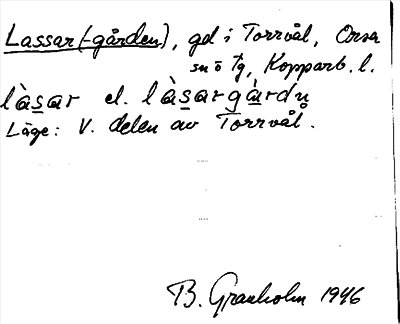 Lassar (-gården), gd i Torrvål, Orsa
sn o tg, Kopparb. l.
làsar el. làsargàrdn̥
Läge: V. delen av Torrvål.
B. Granholm 1946